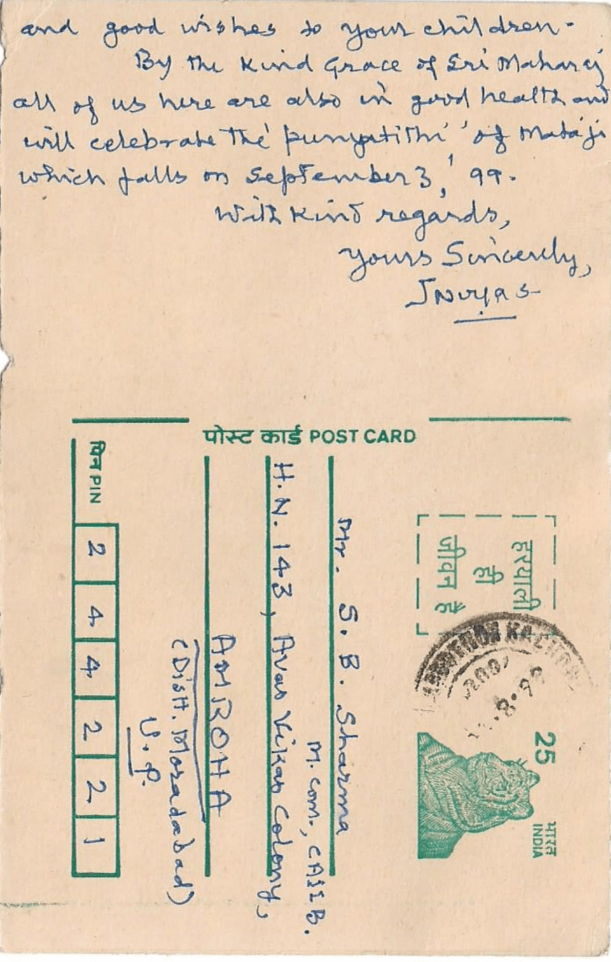 and good wishes to your children.
By the Kind Grace of Sri Maharaj
all of us here are also in good health and
will celebrate the 'punyatithi' of Mataji
which falls on September 3, '99.
With kind regards,
Yours Sincerely,
पोस्ट कार्ड POST CARD
हरयाली
ही
जीवन है
25
भारत
INDIA
Mr. S. B. Sharma
M. Com., CAIIB.
H. N. 143, Avas Vikas Colony,
AMROHA
(Distt. Moradabad)
U. P.
पिन PIN
2 4 4 2 2 1